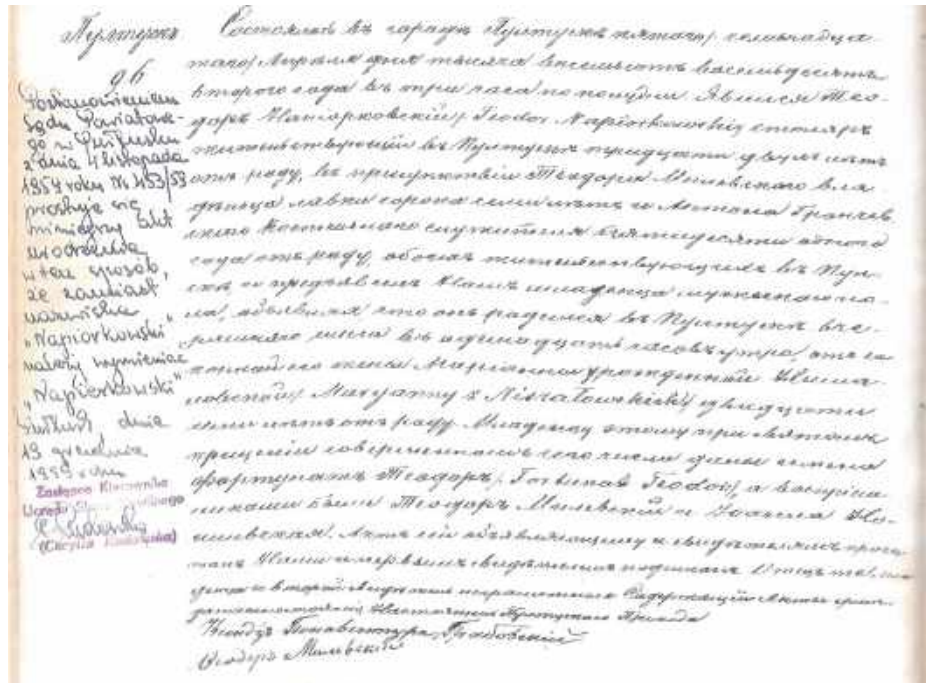 Пултускъ
96
Postanowieniem
Sądu Powiatowe-
go w Pułtusku
z dnia 4 listopada
1959 roku Nr 453/59
prostuje się
niniejszy akt
urodzenia
w ten sposób,
że zamiast
nazwiska
„Napiorkowski”
należy wymieniać
„Napierkowski”
Pułtusk, dnia
19 grudnia
1959 roku
Zastępca Kierownika
Urzędu Stanu Cywilnego
Состоялось въ городѣ Пултускѣ пятаго / семнадца-
таго / Апрѣля дня тысяча восемьсотъ восемьдесятъ
втораго года въ три часа по полудни. Явился Тео-
доръ Напіорковскій / Teodor Napiorkowski / столяръ
жительствующій въ Пултускѣ тридцати двухъ лѣтъ
отъ роду, въ присутствіи Теодора Милевскаго вла-
дѣльца лавки сорока семи лѣтъ и Антона
костельнаго служителя пятидесяти одного
года отъ роду, обоихъ жительствующихъ въ Пул-
скѣ, и предъявилъ Намъ младенца мужескаго по-
ла, объявляя что онъ родился въ Пултускѣ вче-
рашняго числа въ одиннадцать часовъ утра, отъ за-
конной его жены Маріанны урожденной
/ Maryanny z / двадцати
семи лѣтъ отъ роду. Младенцу этому при Святомъ
крещеніи совершенномъ сего числа даны имена
Фортунатъ Теодоръ / Fortunat Teodor /, а воспріем-
никами были Теодоръ Милевскій и
Актъ сей объявляющему и свидѣтелямъ прочи-
танъ Нами и первымъ свидѣтелемъ подписанъ. Отецъ
и второй свидѣтель неграмотны. Содержащій Акты граж-
данскаго состоянія Настоятель Пултускаго Прихода
Ксендзъ Бонавентура Грабовскій
Ѳеодоръ Милевскій